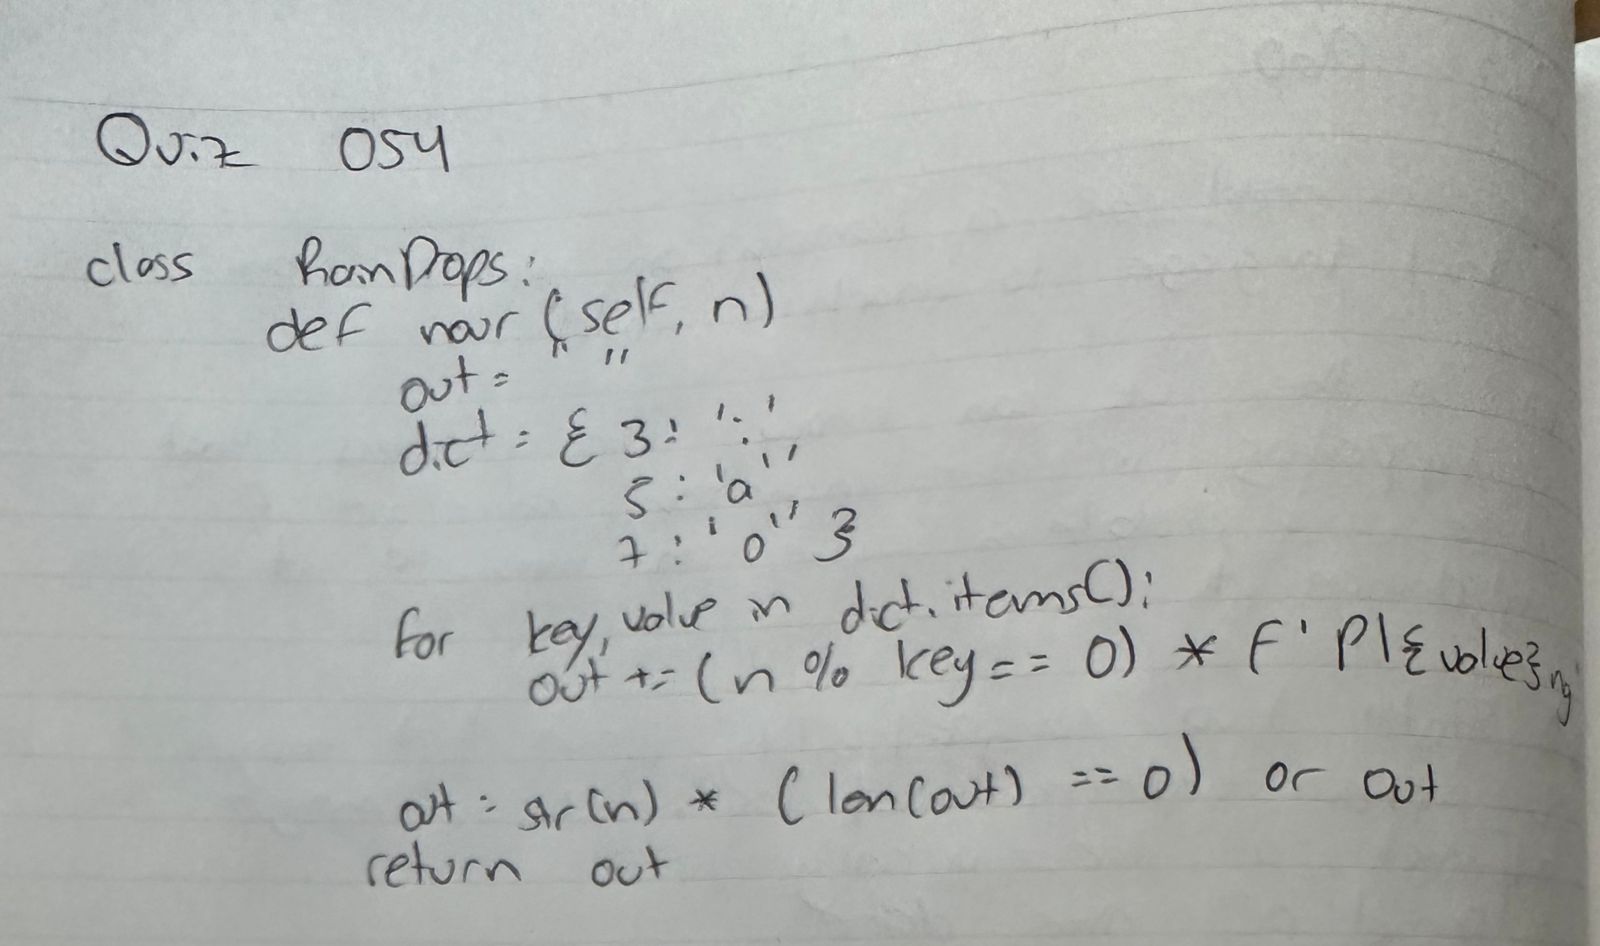 Quiz 054
class RainDops:
def nour (self, n)
out = " "
dict = { 3: 'i',
5: 'a',
7: 'o' }
for key, value in dict.items():
out += (n % key == 0) * f' Pl{value}ng
out = str(n) * (len(out) == 0) or out
return out